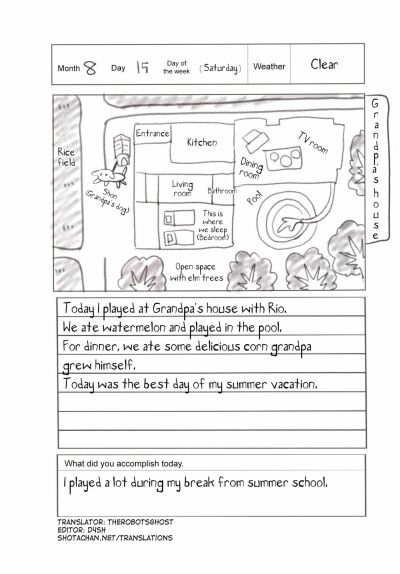 Month 8 Day 15 Day of the week (Saturday) Weather Clear
Grandpa's house
Rice field
Entrance
Kitchen
TV room
Dining room
Shon (Grandpa's dog)
Living room
Bathroom
Pool
This is where we sleep (Bedroom)
Open space with elm trees
Today I played at Grandpa's house with Rio.
We ate watermelon and played in the pool.
For dinner, we ate some delicious corn grandpa
grew himself.
Today was the best day of my summer vacation.
What did you accomplish today.
I played a lot during my break from summer school.
TRANSLATOR: THEROBOTSGHOST
EDITOR: D4SH
SHOTACHAN.NET/TRANSLATIONS